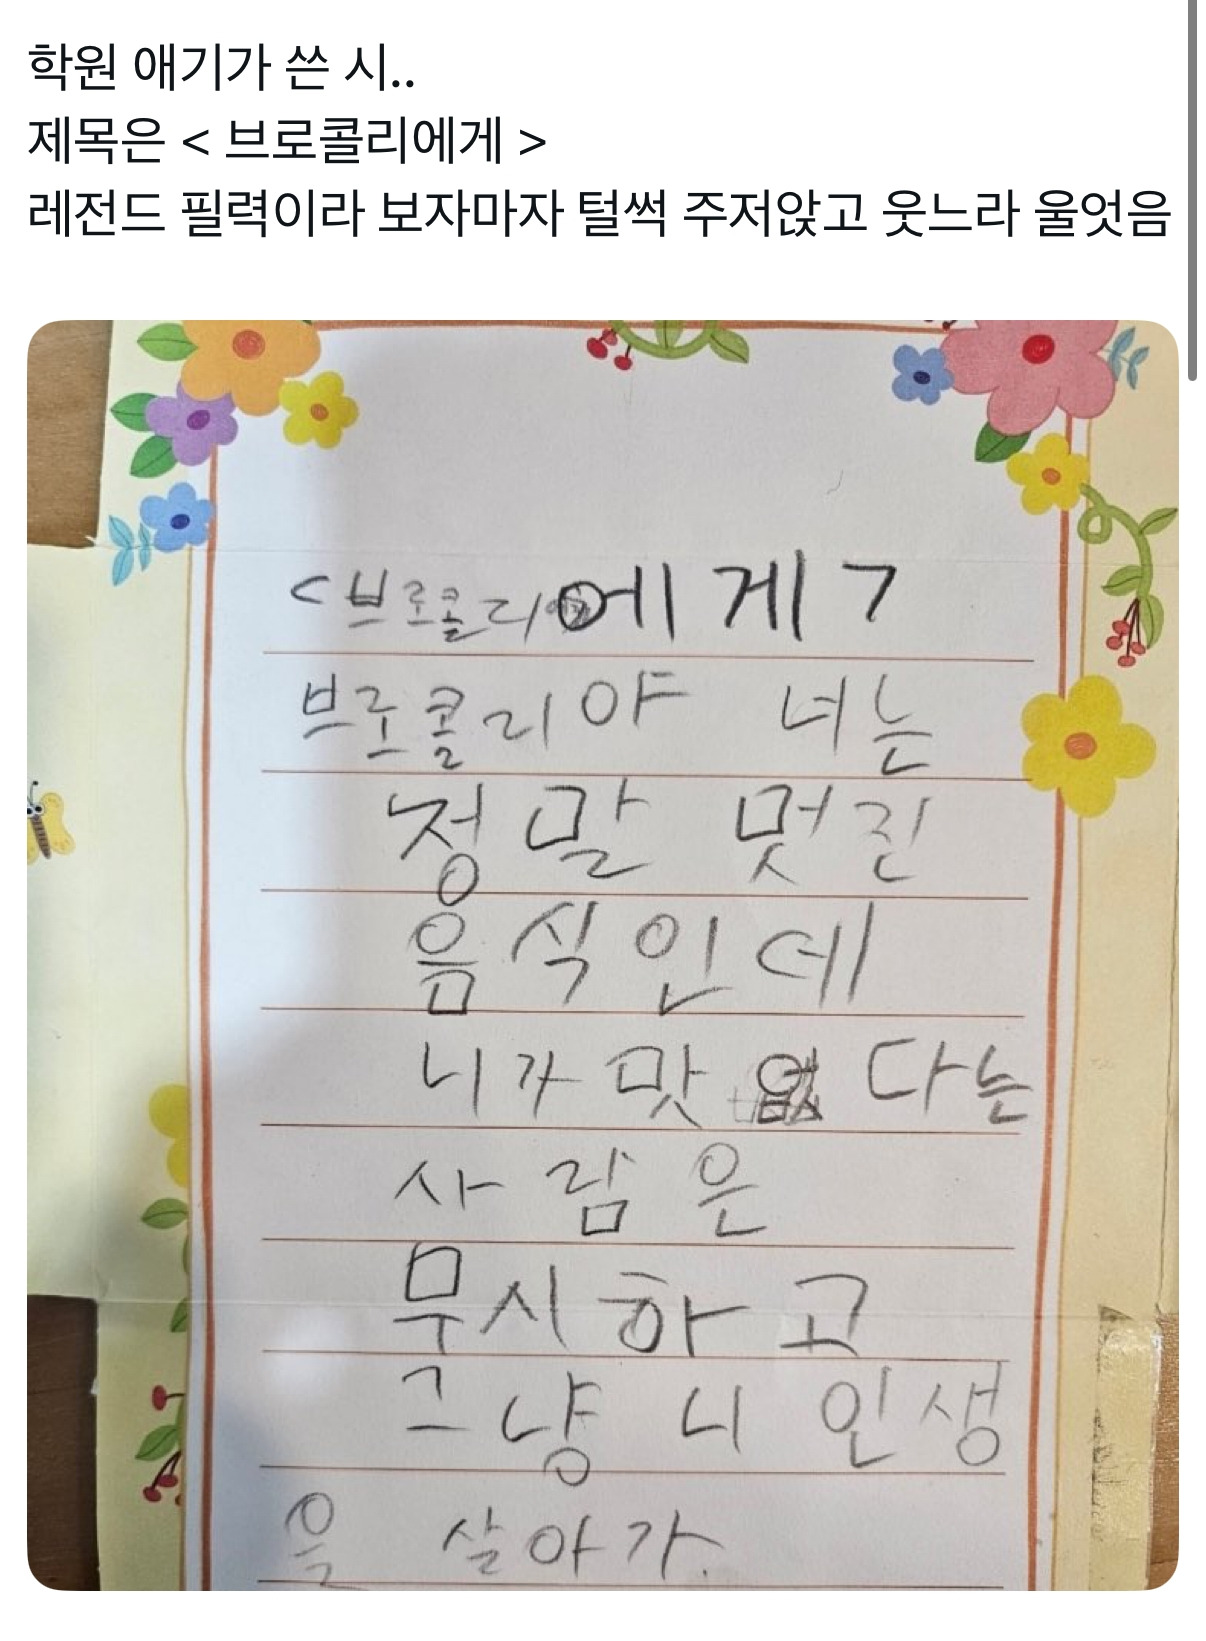 학원 애기가 쓴 시..
제목은 < 브로콜리에게 >
레전드 필력이라 보자마자 털썩 주저앉고 웃느라 울엇음
<브로콜리에게>
브로콜리야 너는
정말 멋진
음식인데
니가 맛없다는
사람은
무시하고
그냥 니 인생
을 살아가.